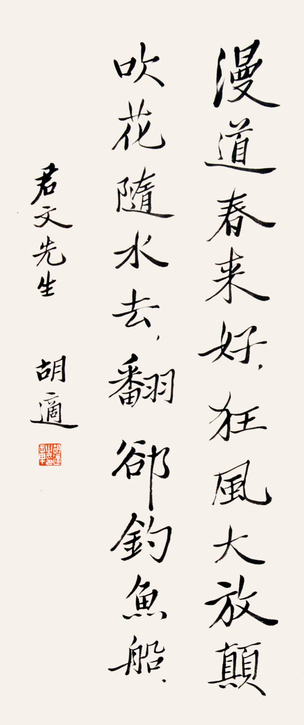 漫道春来好，狂風大放顛
吹花隨水去，翻郤釣魚船．
君文先生
胡適